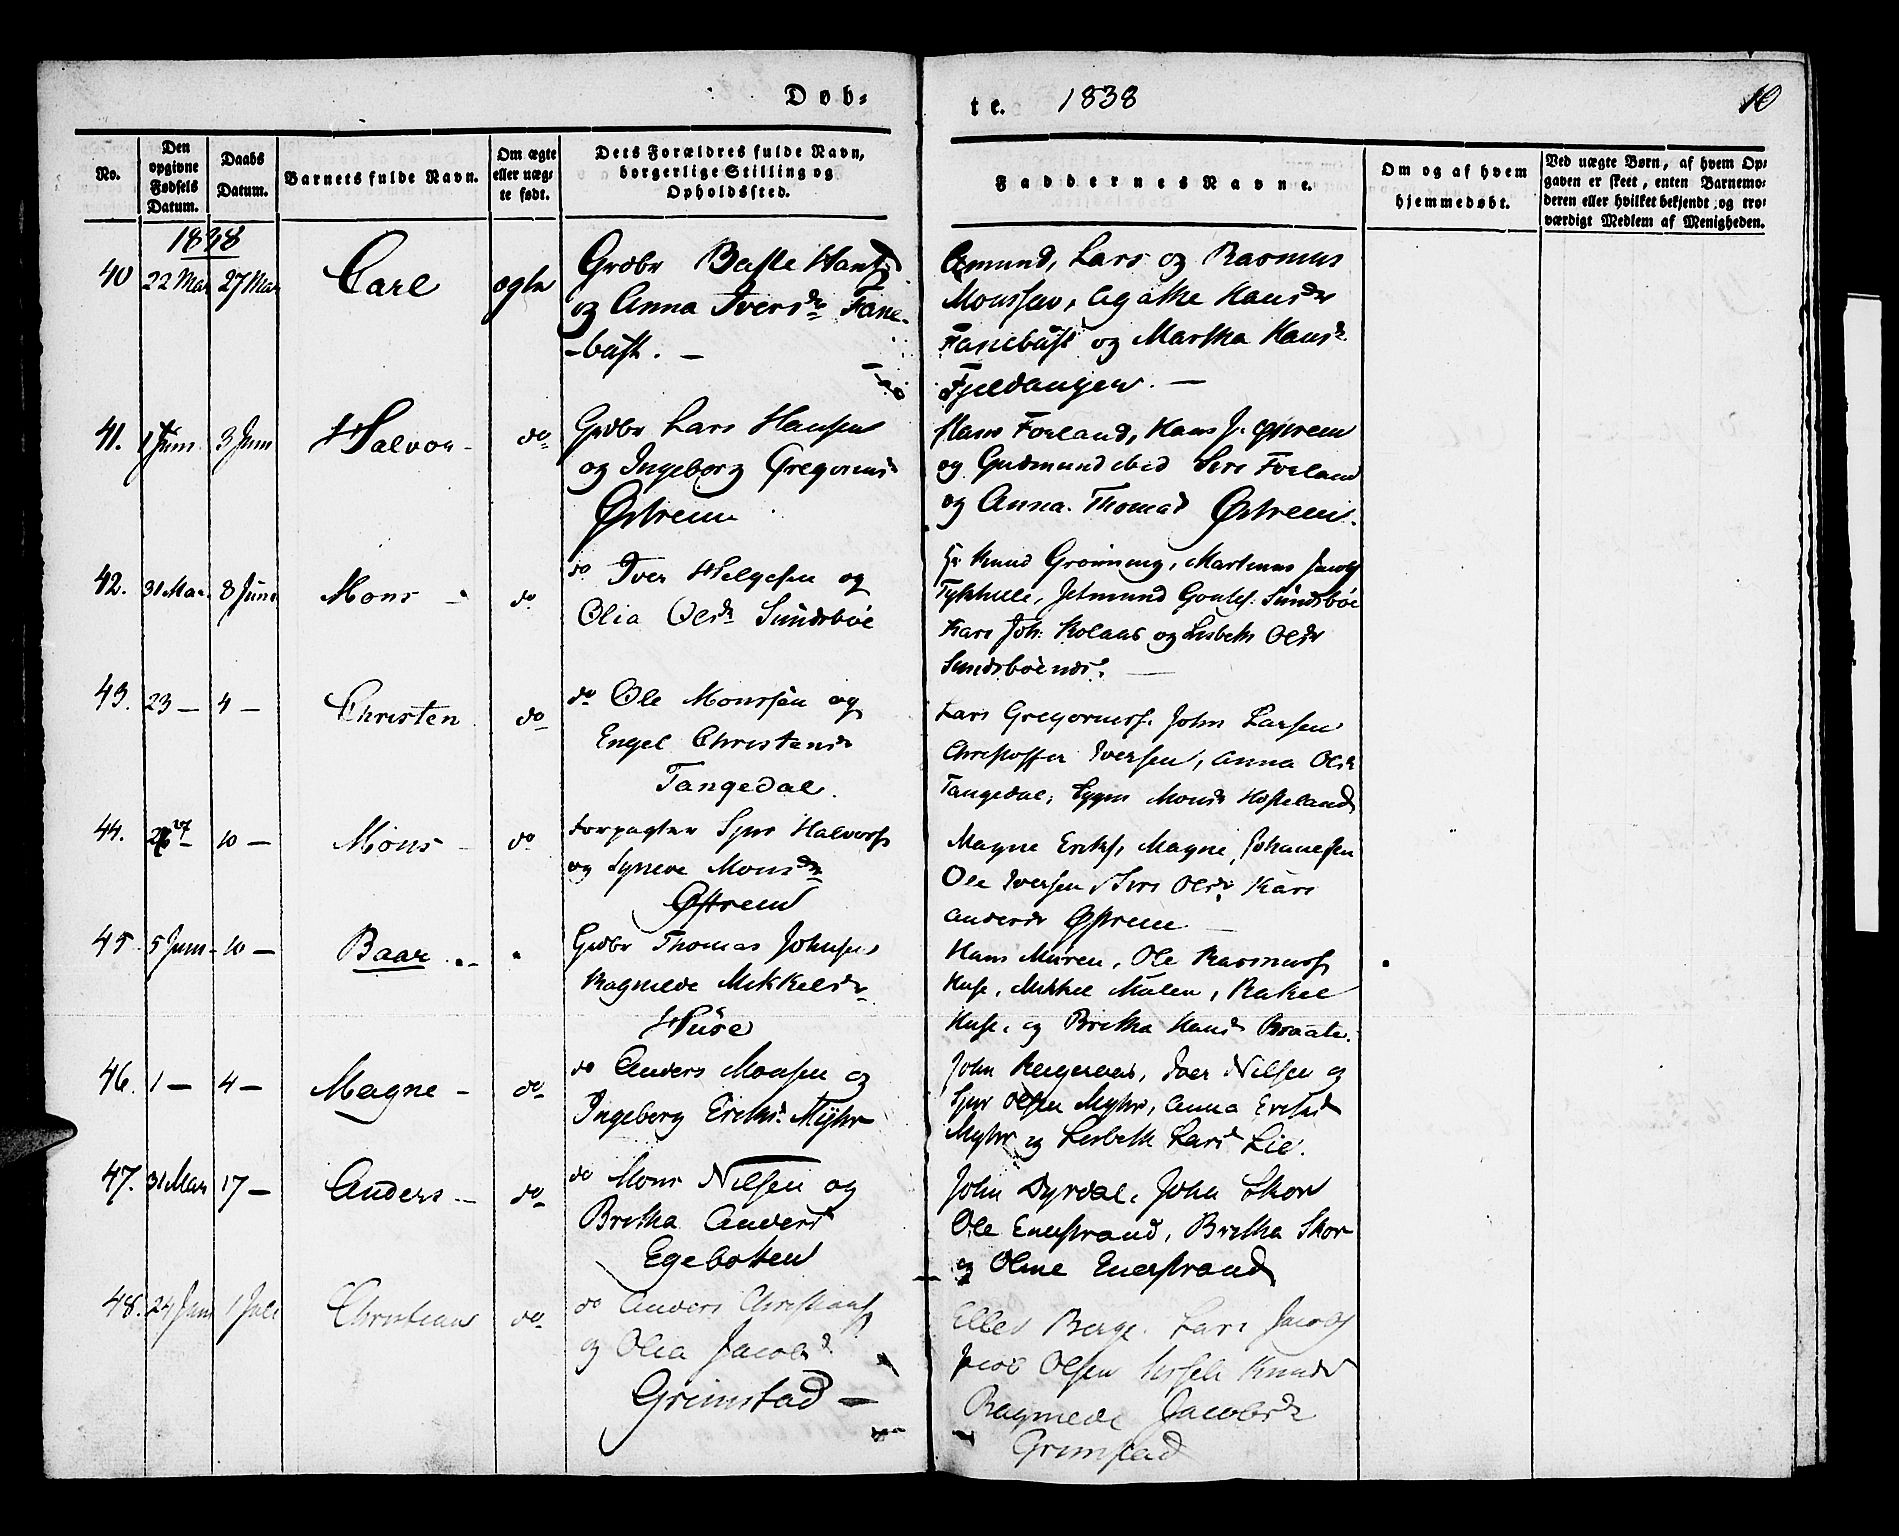 Døb=
te. 1838
10
No.
Den opgivne Fødsels Datum.
Daabs Datum.
Barnets fulde Navn.
Om ægte eller uægte født.
Dets Forældres fulde Navn, borgerlige Stilling og Opholdssted.
Faddernes Navne.
Om og af hvem hjemmedøbt.
Ved uægte Børn, af hvem Opgaven er skeet, enten Barnemoderen eller hvilket bekjendt og troværdigt Medlem af Menigheden.
1838
40 22 Mai 27 Mai Carl ægte
Grdbr Baste Hansf
og Anna Iversdr Fane-
-bust. —
Amund, Lars og Rasmus
Monssen, Agathe Hansdr
Fanebust og Martha Hansdr
Fjeldanger. —
41. 1 Juni 3 Juni Halvor - do
Grdbr Lars Hansen
og Ingeborg Gregoriusdr
Østrem
Hans Forland, Hans J. Østrem
og Gudmund ibid Siri Forland
og Anna Thomasd Østrem.
42. 31 Mai 8 Juni Mons - do
do Iver Helgesen og
Olia Olsdr Sundsbøe
Knud Martinus Jacobs
Jetmund Sundsbøe
Kari Joh. Kolaas og Lisbeth Olsdr
Sundsbøe
43. 23 — 4 — Christen do
do Ole Monssen og
Engel Christensdr
Tangedal.
Lars Gregoriusf. John Larsen
Christoffer Iversen, Anna Olsdr
Tangedal, Monsdr Hopeland
44. 27 10 — Mons - do
Forpagter Sjur Halvorsf
og Syneve Monsdr
Østrem
Magne Eriksf, Magne Johanessen
Ole Iversen Siri Olsdr Kari
Andersdr Østrem —
45 5 Juni - 10 — Baar
Grdbr Thomas Johnsen
Ragnilde Mikkelsdr
Huse
Hans Muren, Ole Rasmusf
Huse, Mikkel Mulen, Rakel
Huse, og Britha Hansd Braate.
46. 1 — 4 — Magne - do
do Anders Monsen og
Ingeborg Eriksd. Myhr
John Iver Nilsen og
Sjur Olsen Myhr, Anna Eriksd
Myhr og Lisbeth Larsd Lie.
47. 31 Mai 17 — Anders - do
do Mons Nilsen og
Britha Andersd
Egebotten
John Dyrdal, John Skor
Ole Enerstrand, Britha Skor
og Oline Enerstrand
48. 24 Juni 1 Juli Christian do
do Anders Christiansf
og Olea Jacobsd
Grimstad —
Elles Berge. Lars Jacobsf
Jacob Olsen Knudsd
Ragnilde Jacobsdr
Grimstad